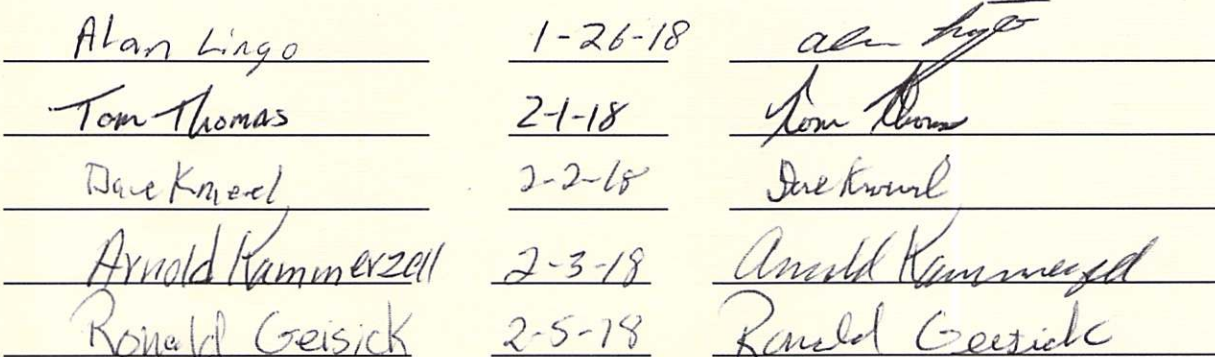 Alan Lingo 1-26-18 Alan Lingo
Tom Thomas 2-1-18 Tom Thomas
Dave 2-2-18 Dave
Arnold Kammerzell 2-3-18 Arnold Kammerzell
Ronald Geisick 2-5-18 Ronald Geisick